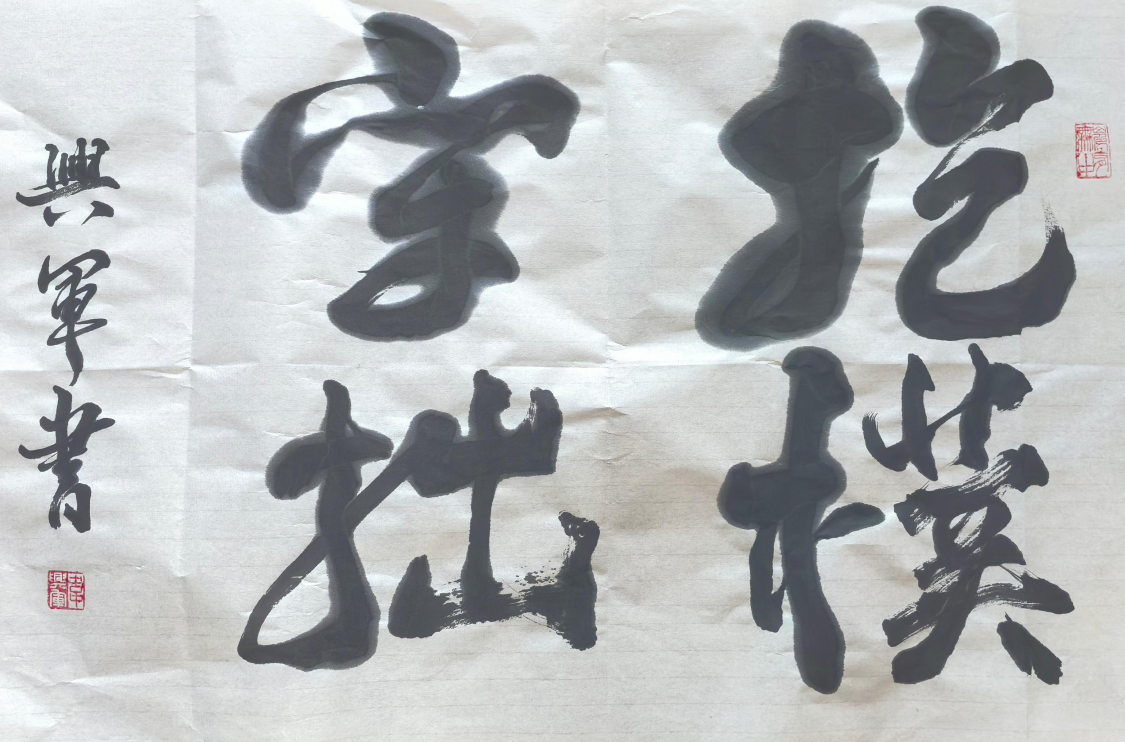 抱樸
守拙
興軍書